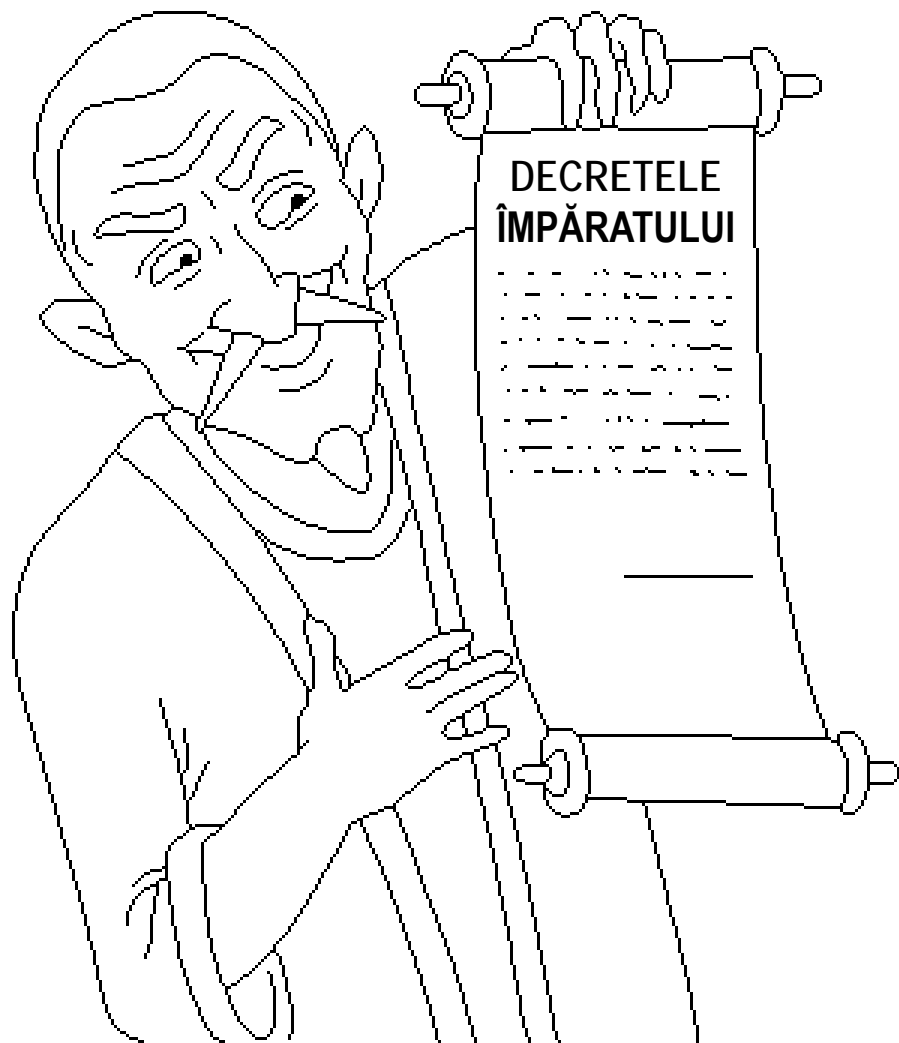 DECRETELE
ÎMPĂRATULUI